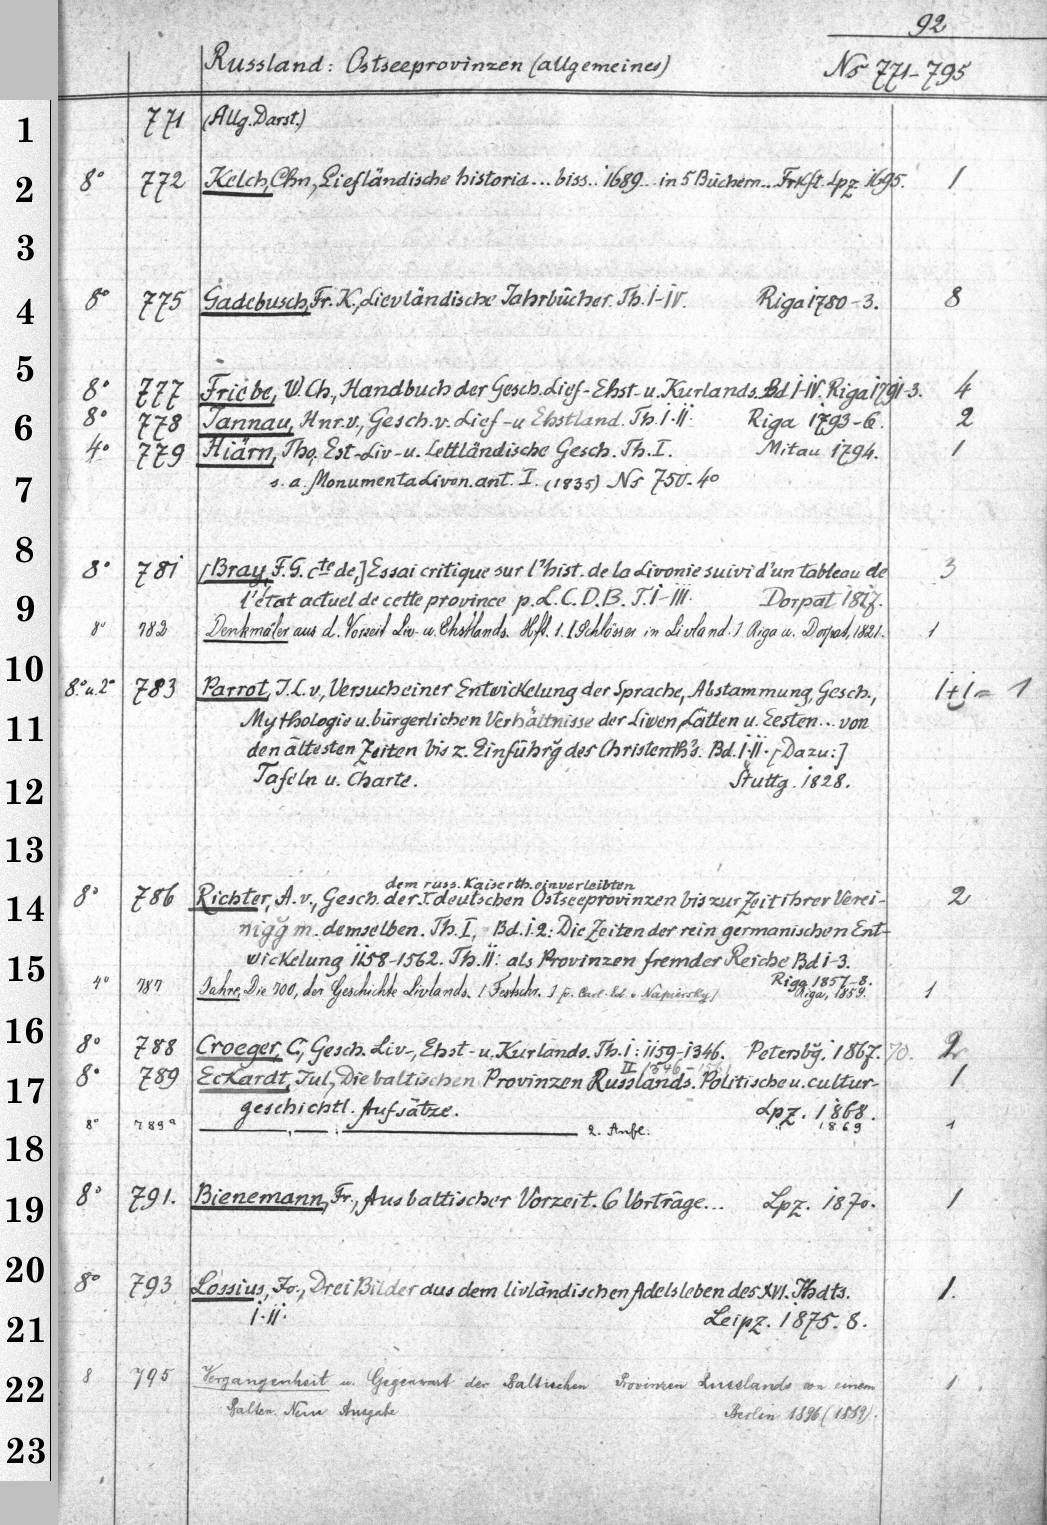 92
Russland: Ostseeprovinzen (allgemeines) No 771-795
1 771 (Allg. Darst.)
2 8° 772 Kelch, Chn, Liefländische historia... biss.. 1689.. in 5 Büchern... Frkft. Lpz 1695. 1
3
4 8° 775 Gadebusch, Fr. K., Lievländische Jahrbücher. Th. I-IV. Riga 1780-3. 8
5 8° 777 Friebe, W. Ch., Handbuch der Gesch. Lief- Ehst- u. Kurlands. Bd I-IV. Riga 1791-3. 4
6 8° 778 Jannau, Hnr. v., Gesch. v. Lief- u Ehstland. Th. I-II. Riga 1793-6. 2
4° 779 Hiärn, Tho, Est- Liv- u. Lettländische Gesch. Th. I. Mitau 1794. 1
7 s. a. Monumenta Livon. ant. I. (1835) No 750. 4°
8 8° 781 [Bray, F. G. cte de,] Essai critique sur l'hist. de la Livonie suivi d'un tableau de 3
9 l'état actuel de cette province p. L. C. D. B. T. I-III. Dorpat 1817.
8° 782 Denkmäler aus d. Vorzeit Liv- u. Ehstlands. Hft. 1. [Schlösser in Livland.] Riga u. Dorpat, 1821. 1
10 8.° u. 2° 783 Parrot, J. L. v., Versuch einer Entwickelung der Sprache, Abstammung, Gesch., 1+1= 1
11 Mythologie u. bürgerlichen Verhältnisse der Liwen, Lätten u. Eesten... von
den ältesten Zeiten bis z. Einführg des Christenth's. Bd. I-II. [Dazu:]
12 Tafeln u. Charte. Stuttg. 1828.
13
dem russ. Kaiserth. einverleibten
14 8° 786 Richter, A. v., Gesch. der deutschen Ostseeprovinzen bis zur Zeit ihrer Verei- 2
nigg m. demselben. Th. I, Bd. 1. 2: Die Zeiten der rein germanischen Ent-
15 wickelung 1158-1562. Th. II: als Provinzen fremder Reiche Bd 1-3.
Riga 1857-8.
4° 787 Jahre, Die 700, der Geschichte Livlands. [Festschr.] Riga, 1859. 1
16 8° 788 Croeger, C., Gesch. Liv-, Ehst- u. Kurlands. Th. I: 1159-1346. Petersbg. 1867. 70. 2
II
17 8° 789 Eckardt, Jul., Die baltischen Provinzen Russlands. Politische u. cultur- 1
geschichtl. Aufsätze. Lpz. 1868.
18 8° 789ª 2. Aufl. 1869 1
19 8° 791. Bienemann, Fr., Aus baltischer Vorzeit. 6 Vorträge... Lpz. 1870. 1
20 8° 793 Lossius, Jo., Drei Bilder aus dem livländischen Adelsleben des XVI. Jhdts. 1.
21 I-II. Leipz. 1875. 8.
22 8 795 Vergangenheit u. Gegenwart der Baltischen Provinzen Russlands von einem 1
Balten. Neue Ausgabe Berlin 1896 (1889).
23